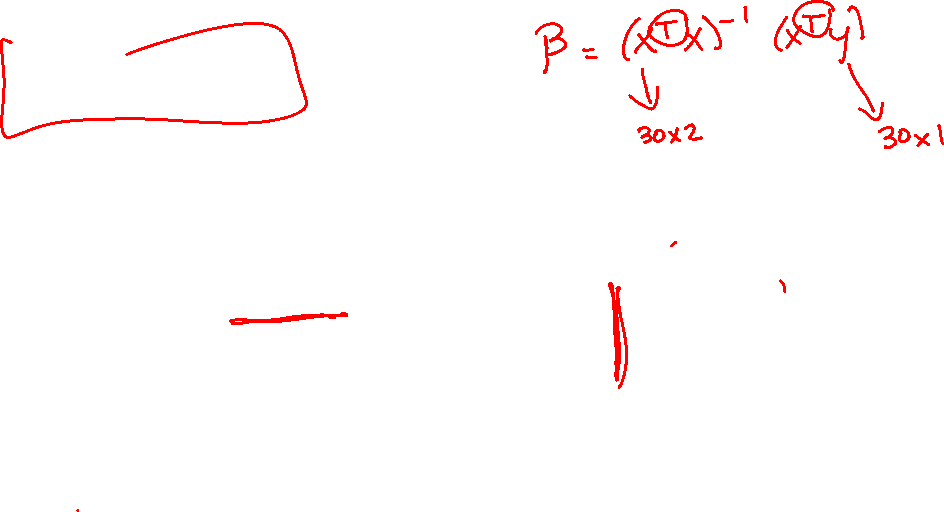 β = (x^T x)^-1 (x^T y)
30x2 30x1